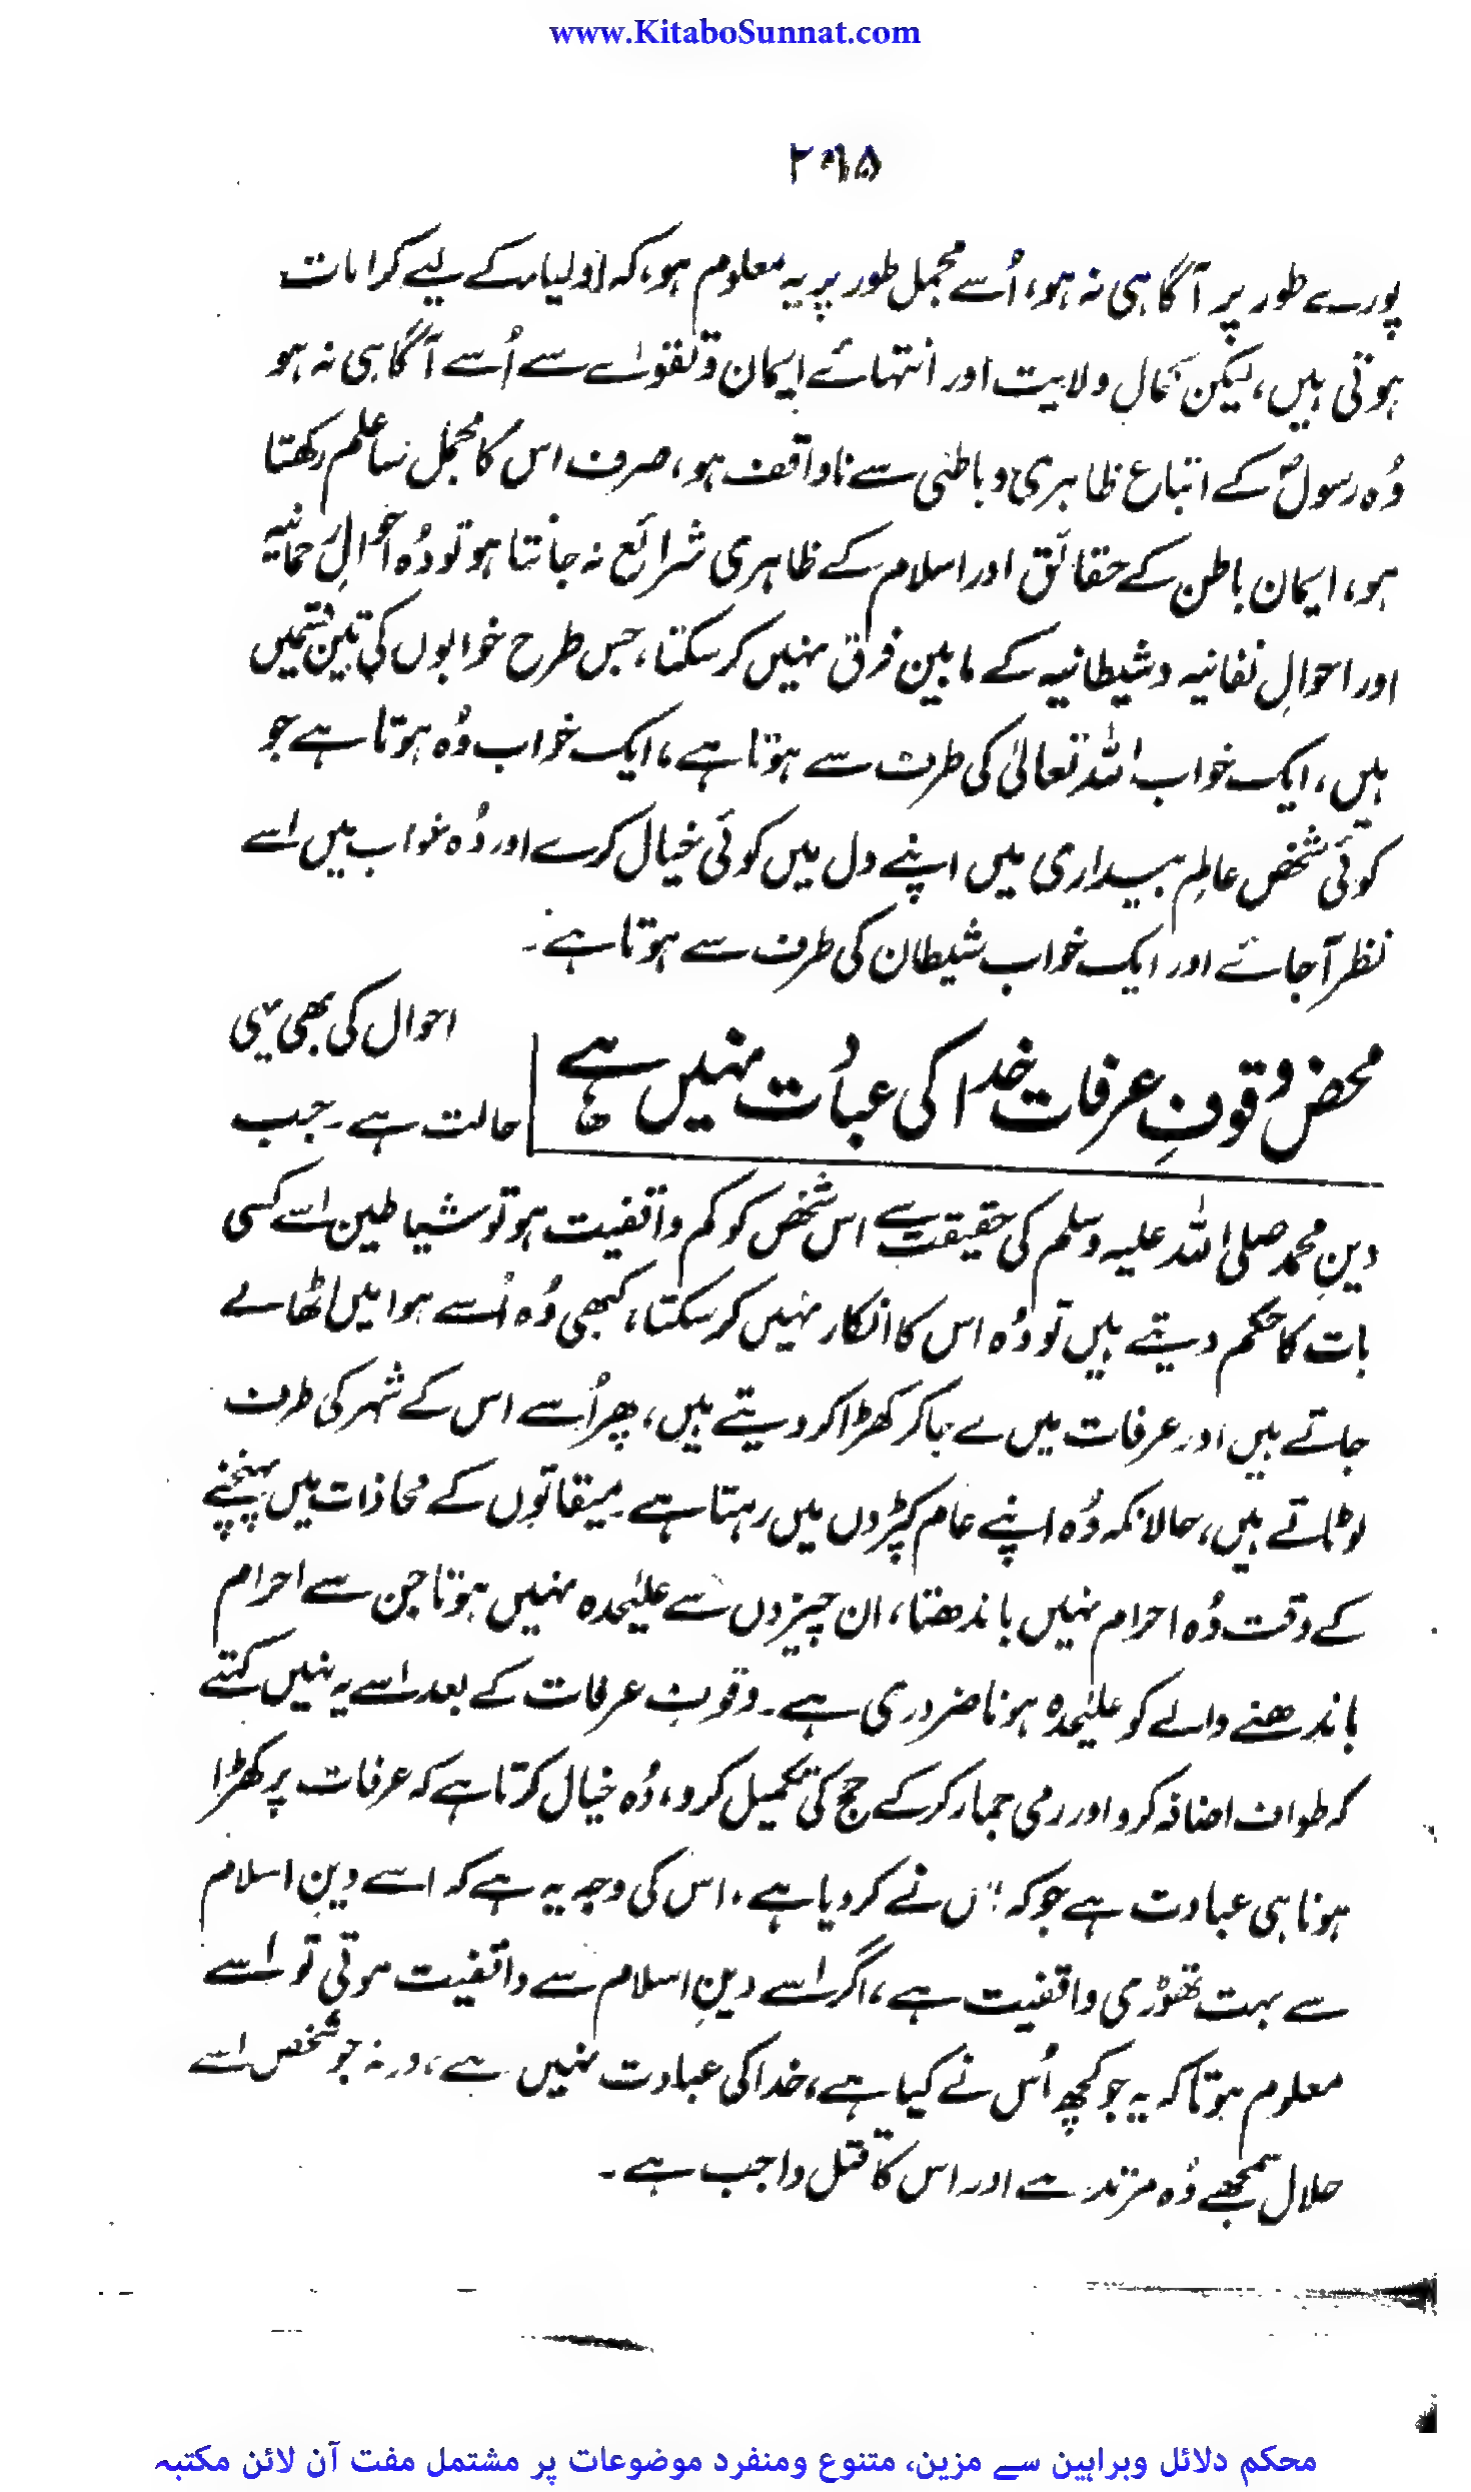 www.KitaboSunnat.com
۲۹۵
پورے طور پر آگاہی نہ ہو، اُسے مجمل طور پر یہ معلوم ہو، کہ اولیاء کے لیے کرامات
ہوتی ہیں، لیکن کمالِ ولایت اور انتہائے ایمان و تقوےٰ سے اُسے آگاہی نہ ہو
وُہ رسولؐ کے اتباع ظاہری و باطنی سے ناواقف ہو، صرف اس کا مجمل سا علم رکھتا
ہو، ایمان باطن کے حقائق اور اسلام کے ظاہری شرائع نہ جانتا ہو تو وُہ احوالِ رحمانیہ
اور احوالِ نفانیہ و شیطانیہ کے مابین فرق نہیں کر سکتا، جس طرح خوابوں کی تین قسمیں
ہیں، ایک خواب اللہ تعالیٰ کی طرف سے ہوتا ہے، ایک خواب وُہ ہوتا ہے جو
کوئی شخص عالمِ بیداری میں اپنے دل میں کوئی خیال کرے اور وُہ خواب میں اسے
نظر آ جائے اور ایک خواب شیطان کی طرف سے ہوتا ہے۔
محض وُقوفِ عرفات خدا کی عبادُت نہیں ہے
احوال کی بھی یہی
حالت ہے۔ جب
دینِ محمد صلی اللہ علیہ وسلم کی حقیقت سے اس شخص کو کم واقفیت ہو تو شیاطین اسے کسی
بات کا حکم دیتے ہیں تو وُہ اس کا انکار نہیں کر سکتا، کبھی وُہ اُسے ہوا میں اٹھا لے
جاتے ہیں اور عرفات میں لے جا کر کھڑا کر دیتے ہیں، پھر اُسے اس کے شہر کی طرف
لوٹاتے ہیں، حالانکہ وُہ اپنے عام کپڑوں میں رہتا ہے۔ میقاتوں کے محاذات میں پہنچنے
کے وقت وُہ احرام نہیں باندھتا، ان چیزوں سے علیٰحدہ نہیں ہوتا جن سے احرام
باندھنے والے کو علیٰحدہ ہونا ضروری ہے۔ وقوف عرفات کے بعد اسے یہ نہیں کہتے
کہ طواف اضافہ کرو اور رمی جمار کر کے حج کی تکمیل کرو، وُہ خیال کرتا ہے کہ عرفات پر کھڑا
ہونا ہی عبادت ہے جو کہ نے کر دیا ہے۔ اس کی وجہ یہ ہے کہ اسے دینِ اسلام
سے بہت تھوڑی واقفیت ہے، اگر اسے دینِ اسلام سے واقفیت ہوتی تو اسے
معلوم ہوتا کہ یہ جو کچھ اُس نے کیا ہے، خدا کی عبادت نہیں ہے، ورنہ جو شخص اسے
حلال سمجھے وُہ مرتد ہے اور اس کا قتل واجب ہے۔
محکم دلائل وبراہین سے مزین، متنوع ومنفرد موضوعات پر مشتمل مفت آن لائن مکتبہ